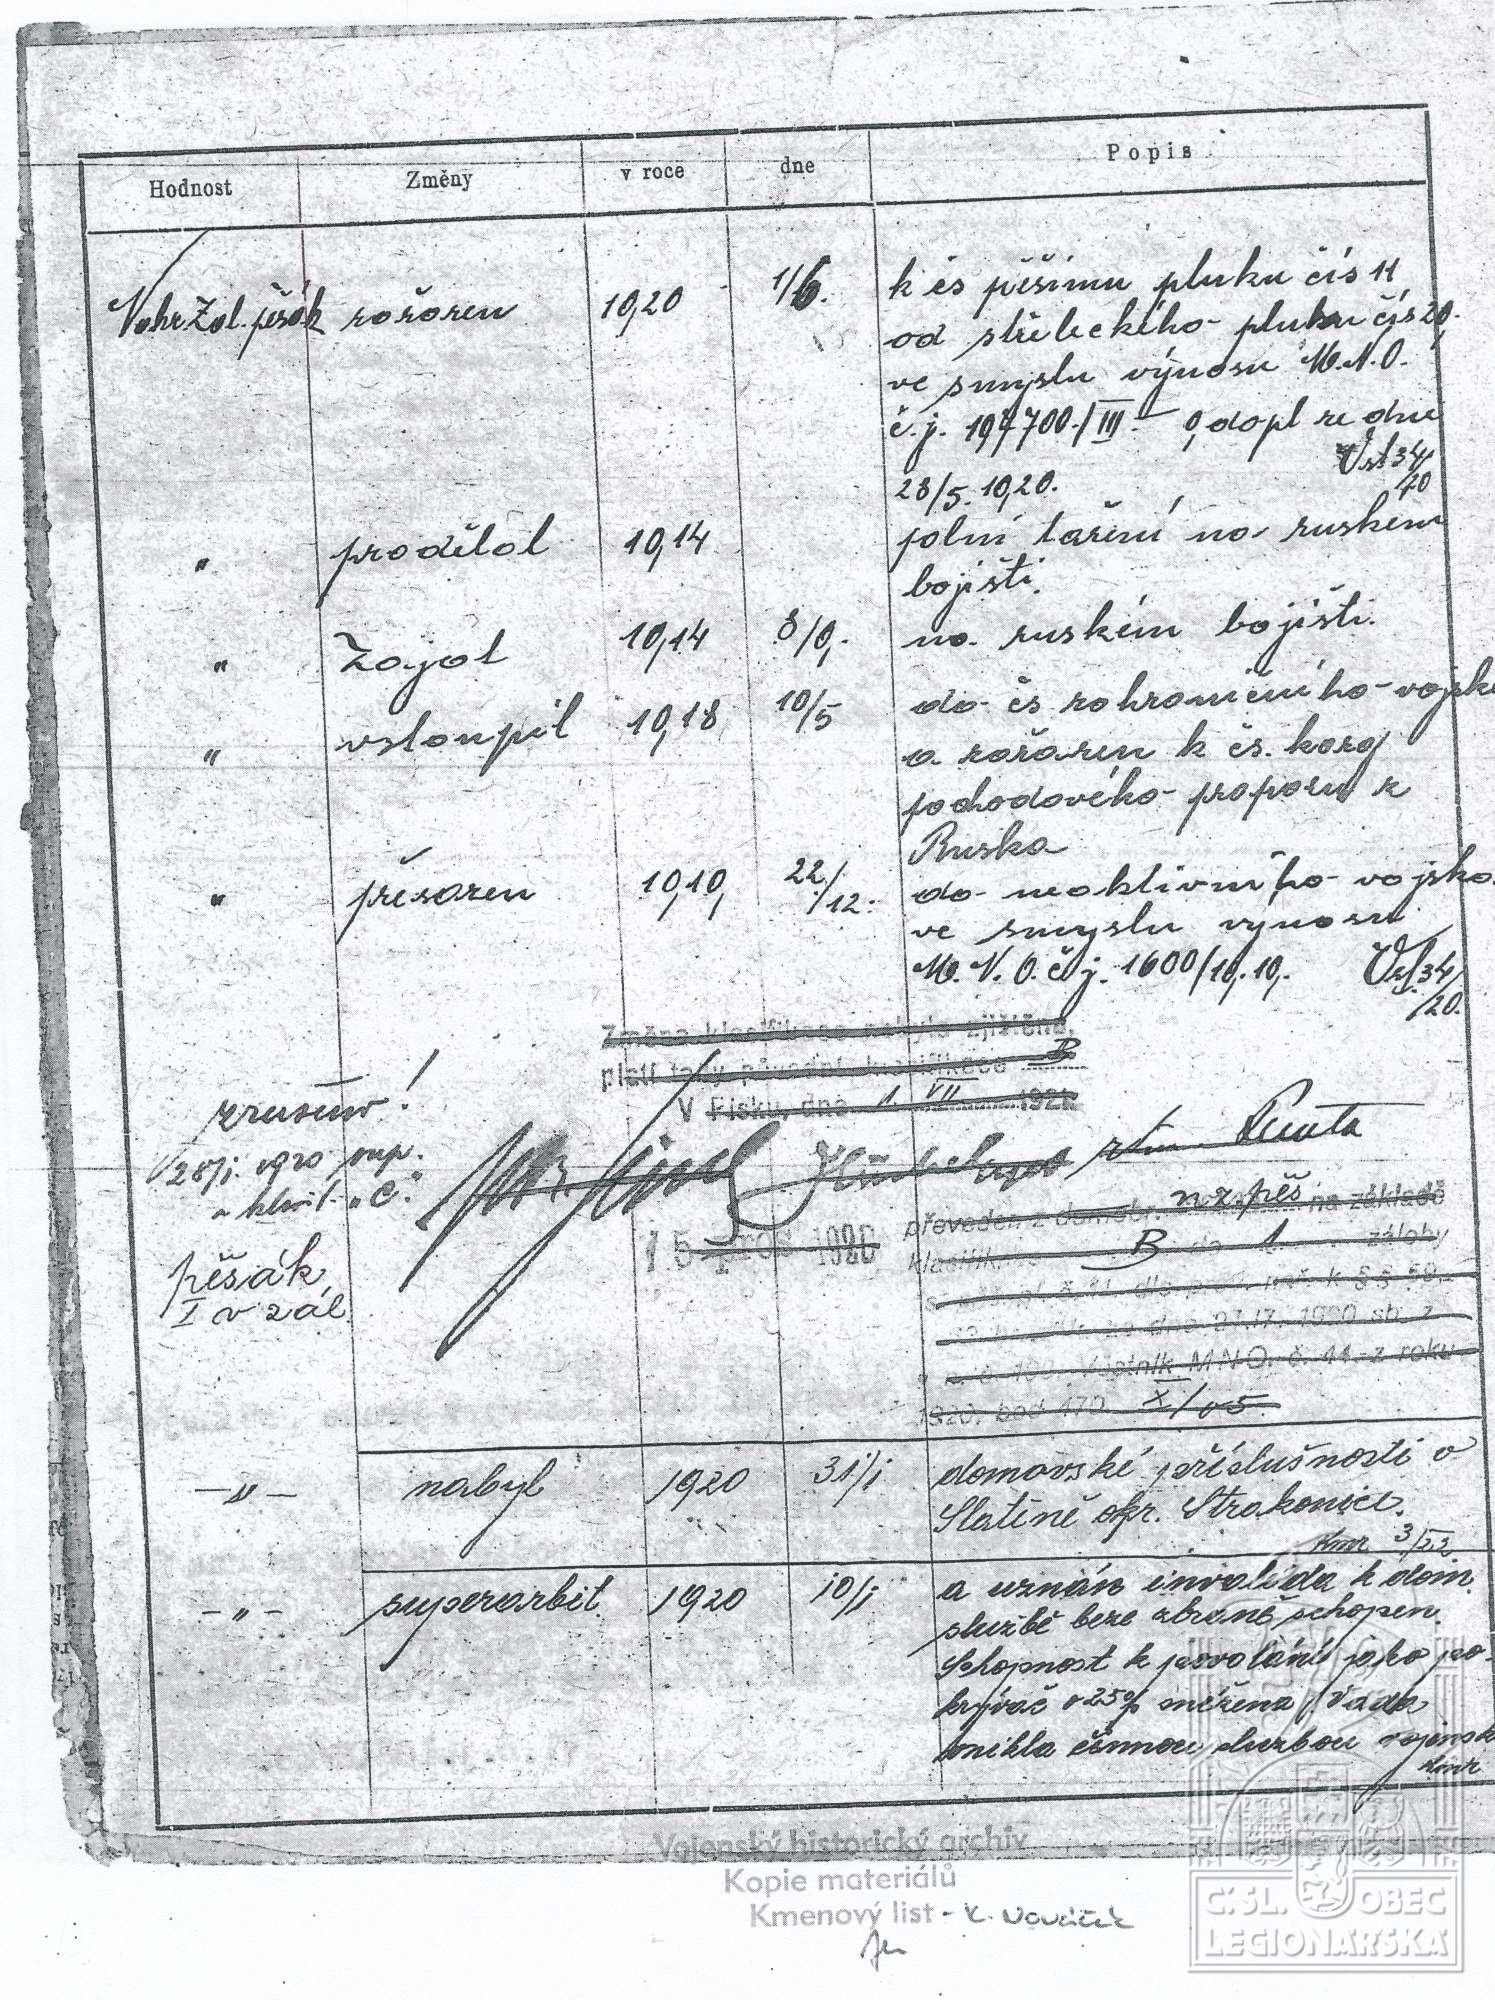 Hodnost Změny v roce dne Popis
Náhr. Zál. pěšák zařazen 1920 1/6. k čs pěšímu pluku čís 11
od střeleckého pluku čís 20.
ve smyslu výnosu M.N.O.
č.j. 197700./III. dopl ze dne
28/5. 1920.
34/20
" prodělal 1914 polní tažení na ruském
bojišti.
" Zajat 1914 8/9. na ruském bojišti.
" vstoupil 1918 10/5 do čs zahraničního vojska
a zařazen k čs. 
pochodového praporu z
Ruska
" přesazen 1919 22/12. do neaktivního vojska
ve smyslu výnosu
M. N. O. č j. 1600/19.19. 34/20.
Změna klasifikace nebyla zjištěna,
platí tedy původní klasifikace B
V Písku, dne 1. VII 1921
zrušeno!
1920
"C."
15 pros 1920
převeden z domobr. na základě
klasifik. B do 1 zálohy
Věstník MNO. č. 44 z roku
1920. bod 470.
pěšák
I v zál.
—"— nabyl 1920 31/1 domovské příslušnosti v
Slatině okr. Strakonice.
3/22
—"— superarbit. 1920 10/1 a uznán invalida k dom.
službě beze zbraně schopen.
Schopnost k povolání jako po-
krývač o 25% snížena. Vada
vznikla činnou službou vojensk.
Vojenský historický archiv
Kopie materiálů
Kmenový list - K. Nováček
ČSL. OBEC
LEGIONÁŘSKÁ